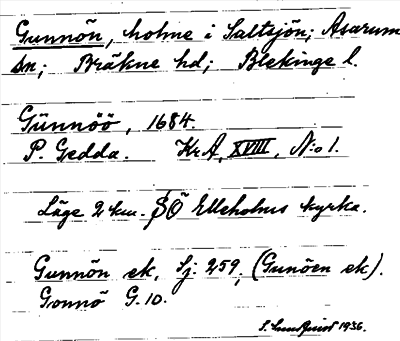 Gunnön, holme i Saltsjön; Asarum
sn; Bräkne hd; Blekinge l.
Günnöö, 1684.
P. Gedda. Kr A, XVIII, N:o 1.
Läge 2 km. SÖ Elleholms kyrka.
Gunnön ek, Sj 259; (Gunöen ek).
Gonnö G. 10.
S. Lundquist 1936.